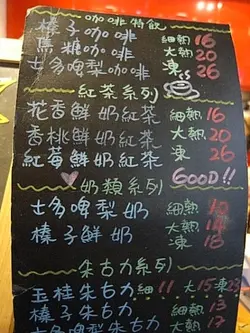 咖啡特飲
榛子咖啡 細熱 16
焦糖咖啡 大熱 20
士多啤梨咖啡 凍 26
紅茶系列
花香鮮奶紅茶 細熱 16
香桃鮮奶紅茶 大熱 20
紅海鮮奶紅茶 凍 26
GOOD!!
奶類系列
士多啤梨奶 細熱 10
榛子鮮奶 大熱 14
凍 18
朱古力系列
玉桂朱古力 細11 大15 凍23
榛子朱古力 細熱 13
士多啤梨朱古力 大熱 17